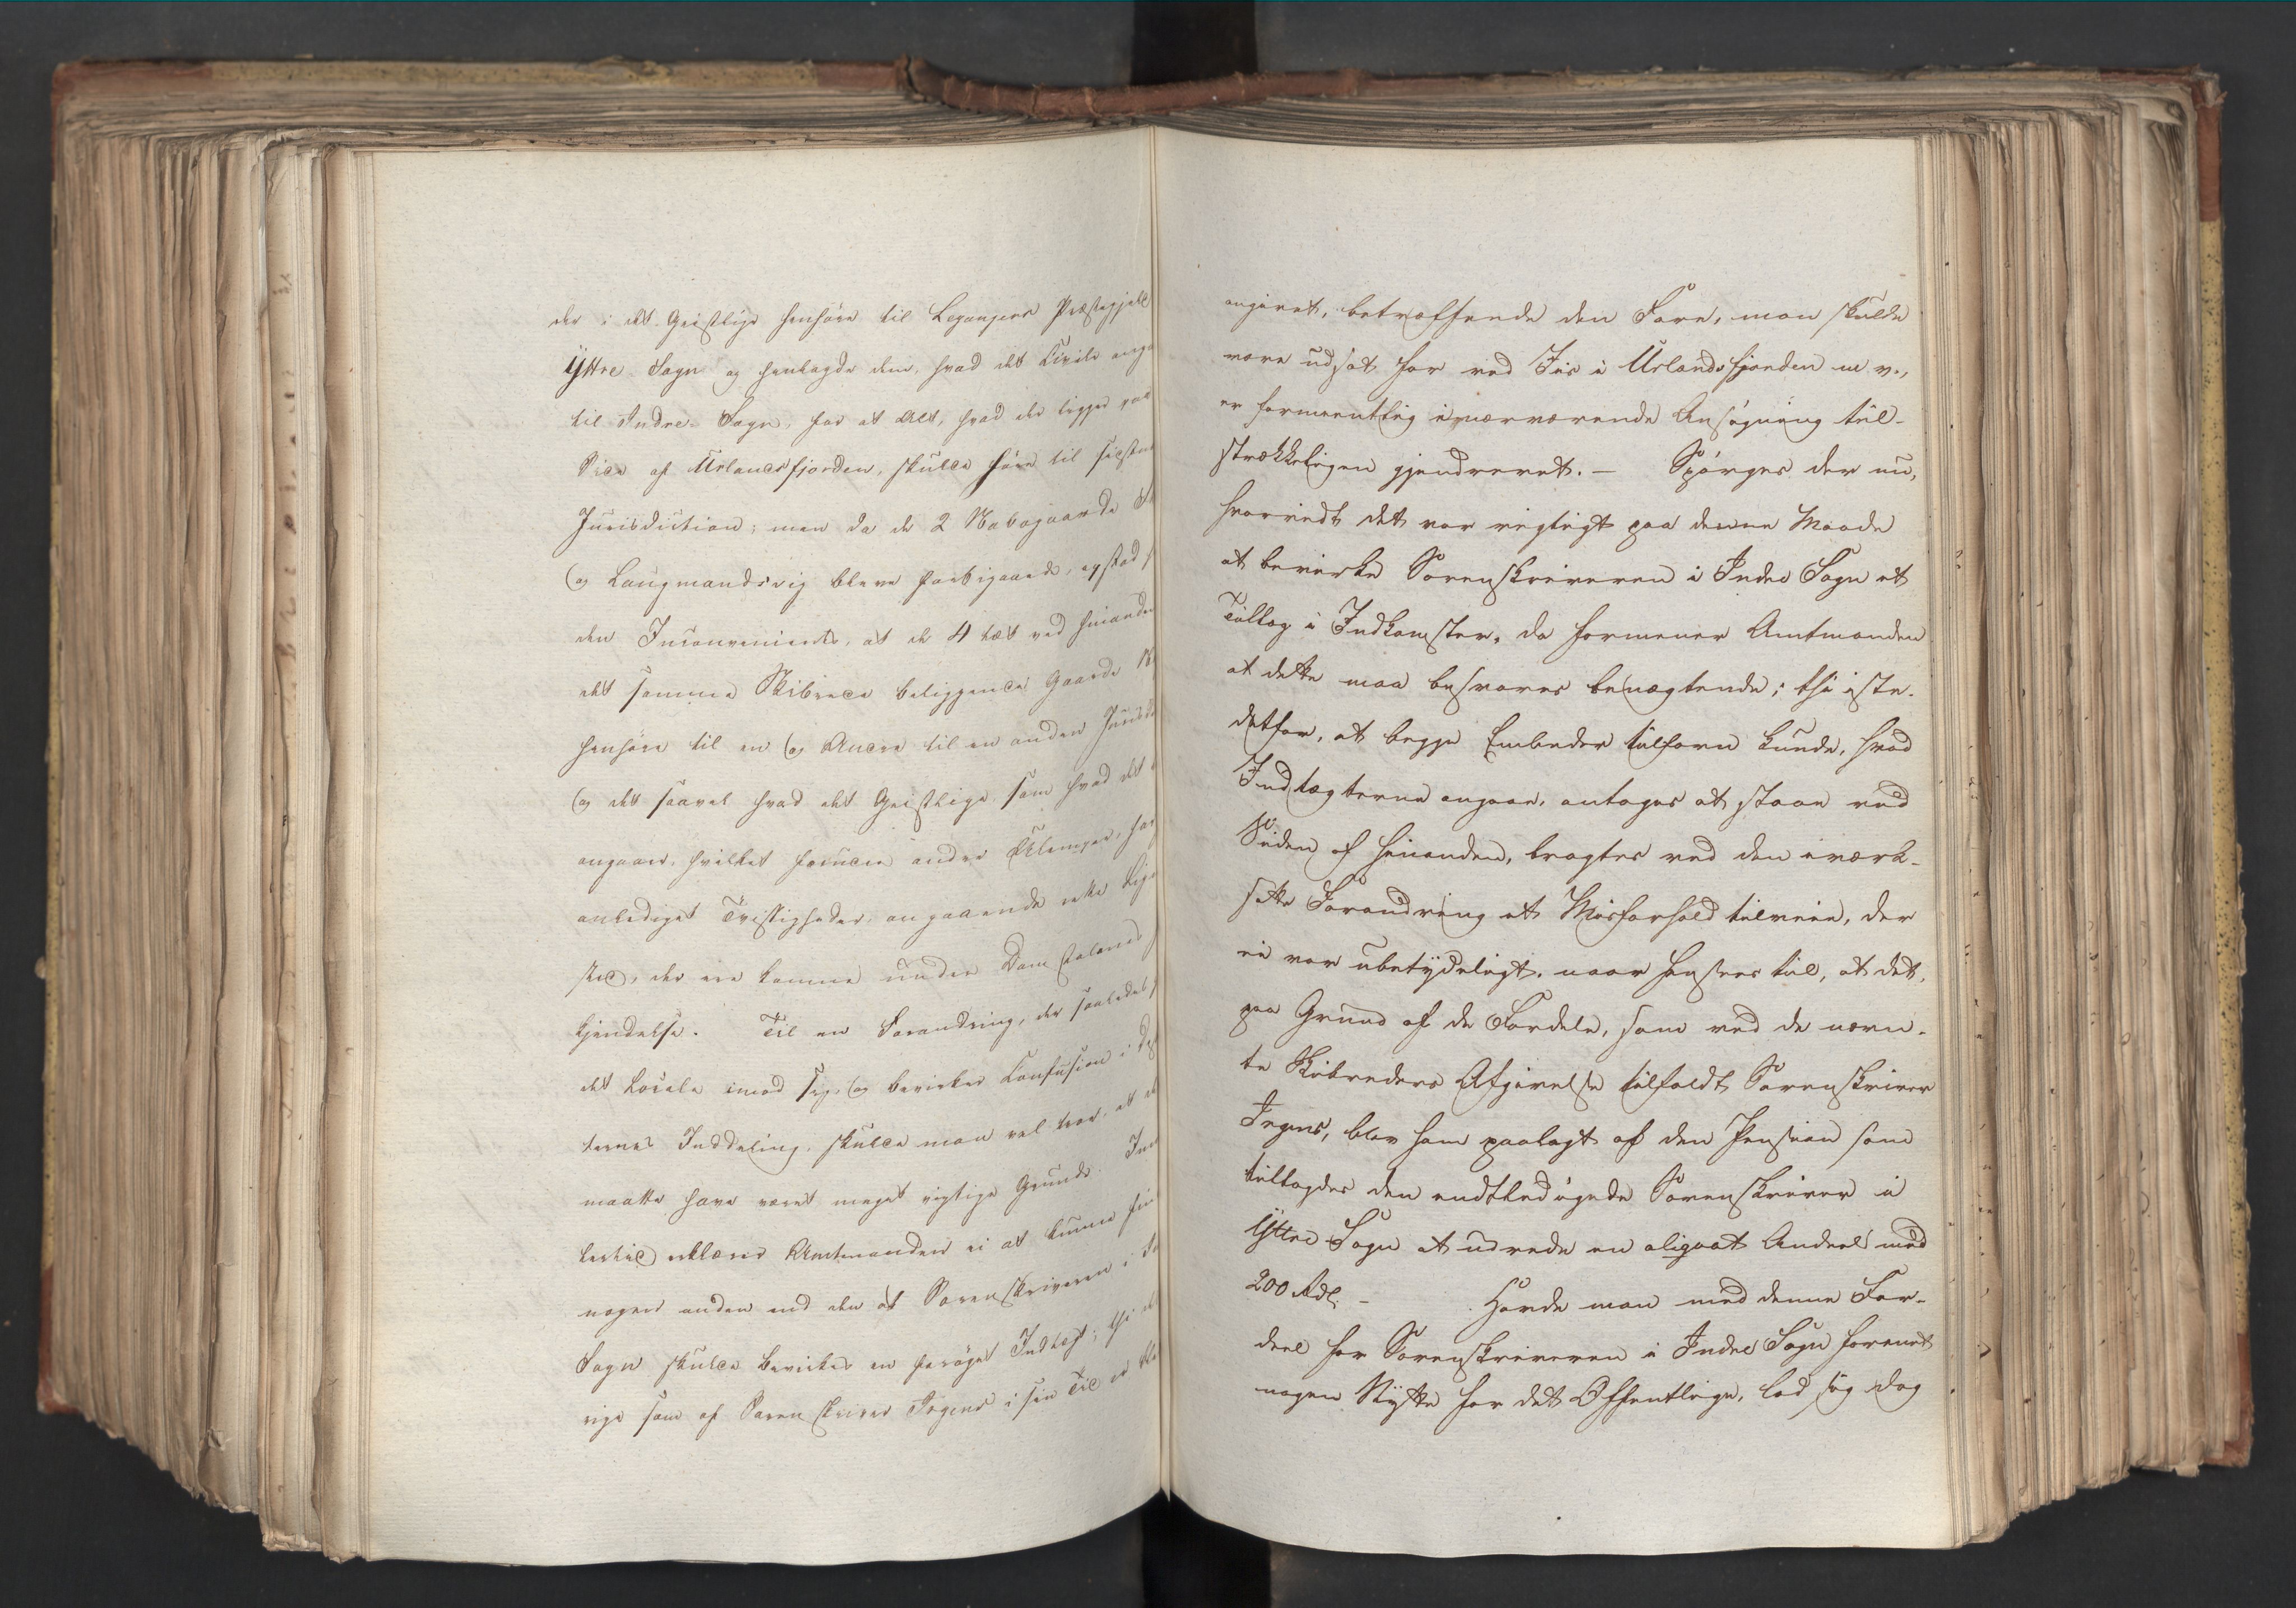 der i det Geistlige henhøre til Leganger Præstegjæld
Yttre Sogn og henlagde dem, hvad det Civile anga
til Indre Sogn, for at Alt, hvad der ligger paa
Side af Urlandsfjorden, skulde høre til sidstn
Jurisdiction; men da de 2 Nabogaarde
og Laugmandsvig bleve forbigaaede, opstod
den Inconvenients, at de 4 tæt ved hinanden
det samme Skibrede beliggende Gaarde
henhøre til en og Andre til en anden Juris
og det saavel hvad det Geistlige som hvad det
angaaer, hvilket foruden andre Ulemper, har
anlediget Tvistigheder, angaaende
der ere komne under Domstolenes
Kjendelse. Til en Forandring, der saaledes
det Locale imod sig, og bevirker Confusion i
ternes Inddeling, skulde man vel troe, at d
maatte have været meget vigtige Grunde. Im
lertid erklærer Amtmanden ei at kunne fin
nogen anden end den at Sorenskriveren i
Sogn skulde bevirkes en forøget Indtægt; thi
rige som af Sorenskriver Irgens i sin Tid er
angivet, betræffende den Fare, man skulde
være udsat for ved Iis i Urlandsfjorden m. v.,
er formeentlig i nærværende Ansøgning til-
strækkeligen gjendrevet. — Spørges der nu,
hvorvidt det var vigtigt paa denne Maade
at bevirke Sorenskriveren i Indre Sogn et
Tillæg i Indkomster, da formener Amtmanden
at dette maa besvares benægtende; thi iste-
detfor, at begge Embeder tilforn kunde, hvad
Indtægterne angaae, antages at staae ved
Siden af hinanden, bragtes ved den iværk-
satte Forandring et Misforhold tilveie, der
ei var ubetydeligt, naar hensees til, at det,
paa Grund af de Fordele, som ved de nævn-
te Skibreders Afgivelse tilfaldt Sorenskriver
Irgens, blev ham paalagt af den Pension som
tillagdes den entledigede Sorenskriver i
Yttre Sogn at udrede en aliqvot Andeel med
200 Rdl. — Havde man med denne For-
deel for Sorenskriveren i Indre Sogn forenet
nogen Nytte for det Offentlige, lod sig dog